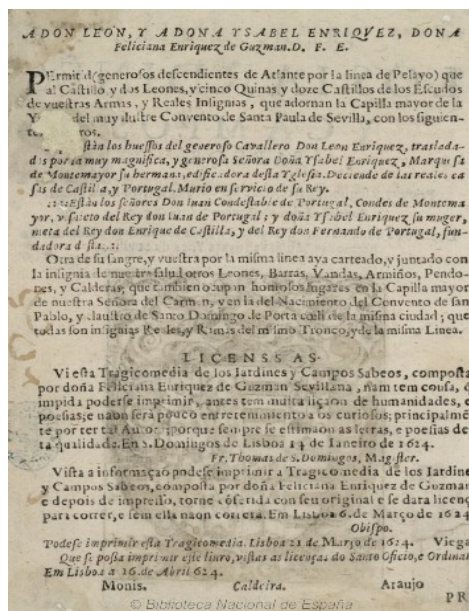 A DON LEON, Y A DONA YSABEL ENRIQVEZ, DOÑA
Feliciana Enriquez de Guzman. D. F. E.
PErmitid (generosos descendientes de Atlante por la linea de Pelayo) que
al Castillo, y dos Leones, y cinco Quinas y doze Castillos de los Escudos
de vuestras Armas, y Reales Insignias, que adornan la Capilla mayor de la
del muy ilustre Convento de Santa Paula de Sevilla, con los siguien-
ros.
stàn los huessos del generoso Cavallero Don Leon Enriquez, traslada-
dos por la muy magnifica, y generosa Señora Doña Ysabel Enriquez, Marquesa
de Montemayor su hermana, edificadora desta Yglesia. Deciende de las reales ca
sas de Castilla, y Portugal. Murio en servicio de su Rey.
Estàn los señores Don Iuan Condestable de Portugal, Condes de Montema
yor, visnieto del Rey don Iuan de Portugal; y doña Ysabel Enriquez su muger,
nieta del Rey don Enrique de Castilla, y del Rey don Fernando de Portugal, fun-
dadora
Otra de su sangre, y vuestra por la misma linea aya carteado, y juntado con
la insignia de nuestra salud otros Leones, Barras, Vandas, Armiños, Pendo-
nes, y Calderas; que tambien ocupan honrosos lugares en la Capilla mayor
de nuestra Señora del Carmen, y en la del Nacimiento del Convento de san
Pablo, y claustro de Santo Domingo de Porta coeli de la misma ciudad; que
todas son insignias Reales, y Ramas del mismo Tronco, y de la misma Linea.
LICENSSAS
Vi esta Tragicomedia de los Iardines y Campos Sabeos, composta
por doña Feliciana Enriquez de Guzman Sevillana, nam tem cousa, q
impida poderse imprimir, antes tem muita liçaon de humanidades, e
poesias; e naon será pouco entretenimento a os curiosos; principalmẽ
te por ter tal Autor; porque sempre se estimaon as letras, e poesias des
ta qualidade. En S. Domingos de Lisboa 14 de Ianeiro de 1624.
Fr. Thomas de S. Domingos, Magister.
Vista a informaçaõ podese imprimir a Tragicomedia de los Iardine
y Campos Sabeos, composta por doña Feliciana Enriquez de Guzman
e depois de impresso, torne cõferida con seu original e se dara licenç
para correr, e sem ella naon correra. Em Lisboa 6. de Março de 1624
Obispo.
Podese imprimir esta Tragicomedia. Lisboa 21 de Março de 1624. Viega
Que se possa imprimir este liuro, vistas as licenças do Santo Oficio, e Ordinar
Em Lisboa a 16. de Abril 624.
Monis. Caldeira. Araujo
PR
© Biblioteca Nacional de España